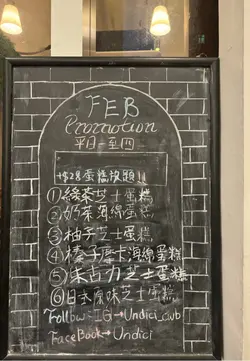 FEB
Promotion
平日一至四
+$28蛋糕放題!!
①綠茶芝士蛋糕
②奶茶海綿蛋糕
③柚子芝士蛋糕
④榛子摩卡海綿蛋糕
⑤朱古力芝士蛋糕
⑥日式原味芝士蛋糕
Follow:IG→Undici_club
FaceBook→Undici